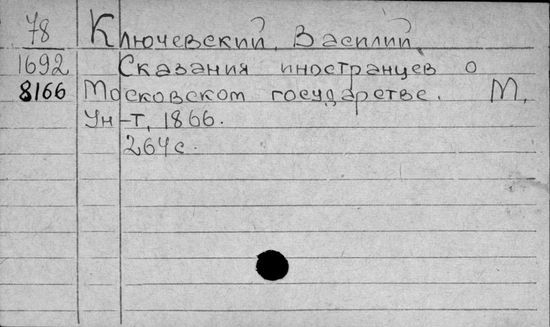 78 Ключевский, Василий.
1692 Сказания иностранцев о
8166 Московском государстве. М,
Ун-т, 1866.
264 с.